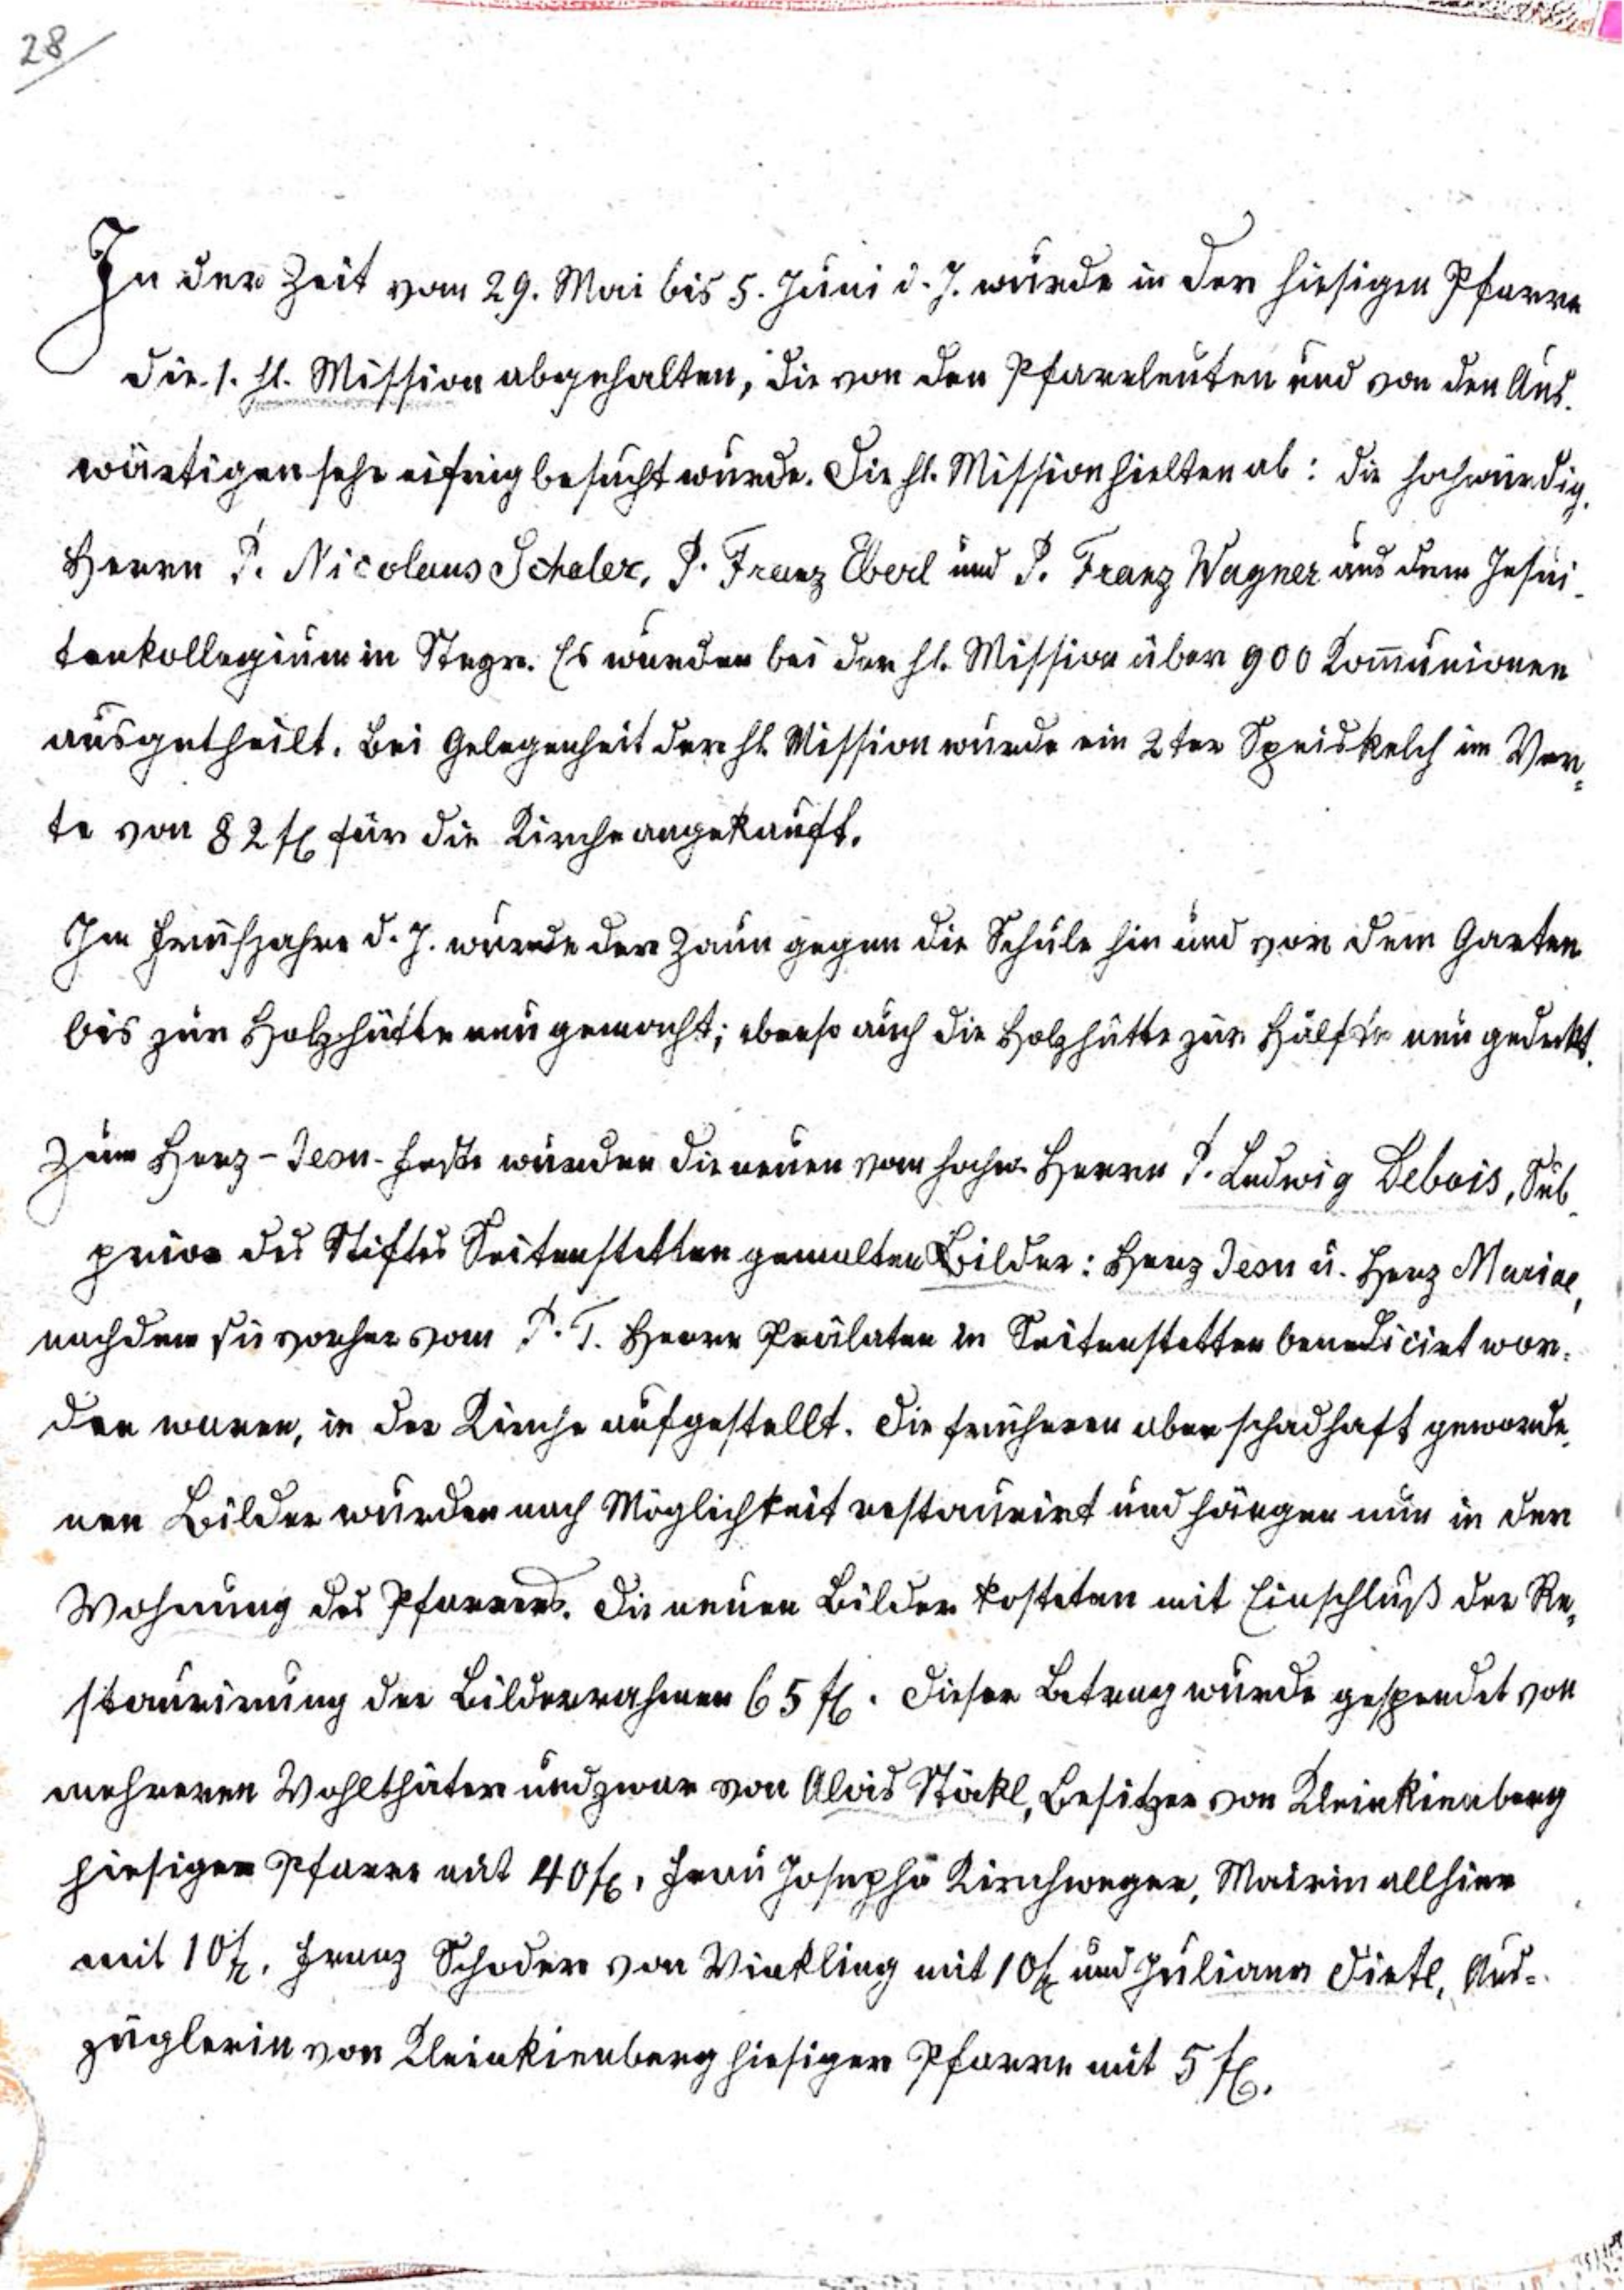 28
In der Zeit vom 29. Mai bis 5. Juni d. J. wurde in der hiesigen Pfarre
die 1. hl. Mission abgehalten, die von den Pfarrleuten und von den Aus-
wärtigen sehr eifrig besucht wurde. Die hl. Mission hielten ab: die hochwürdig.
Herrn P. Nicolaus Schaler, P. Franz Eberl und P. Franz Wagner aus dem Jesui-
tenkollegium in Steyr. Es wurden bei der hl. Mission über 900 Kom̄unionen
ausgetheilt. Bei Gelegenheit der hl. Mission wurde ein 2ter Speiskelch im Wer=
te von 82 fl für die Kirche angekauft.
Im Frühjahre d. J. wurde der Zaun gegen die Schule hin und von dem Garten
bis zur Holzhütte neu gemacht; ebenso auch die Holzhütte zur Hälfte neu gedeckt.
Zum Herz-Jesu-Feste wurden die neuen vom hochw. Herrn P. Ludwig Debois, Sub-
prior des Stiftes Seitenstetten gemalten Bilder: Herz Jesu u. Herz Mariae,
nachdem sie vorher vom P. T. Herrn Prälaten in Seitenstetten benedicirt wor-
den waren, in der Kirche aufgestellt. Die früheren aber schadhaft geworde-
nen Bilder wurden nach Möglichkeit restaurirt und hängen nun in der
Wohnung des Pfarrers. Die neuen Bilder kosteten mit Einschluß der Re=
staurirung der Bilderrahmen 65 fl. Dieser Betrag wurde gespendet von
mehreren Wohlthäter und zwar von Alois Stöckl, Besitzer von Kleinkienberg
hiesiger Pfarre mit 40 fl, Frau Josepha Kirchweger, Mairin allhier
mit 10 fl, Franz Schoder von Winkling mit 10 fl und Juliana Dietl, Aus=
züglerin von Kleinkienberg hiesiger Pfarre mit 5 fl.